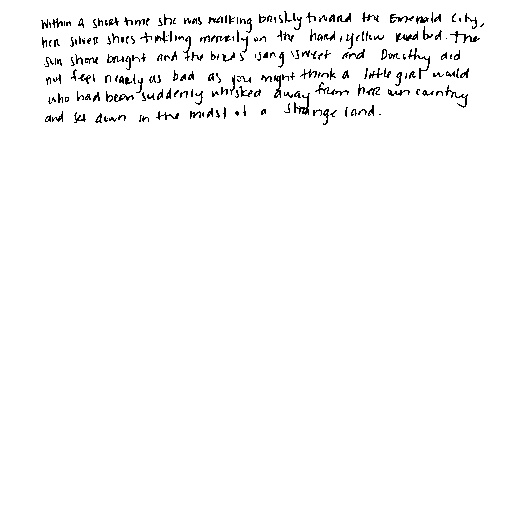 Within a short time she was walking briskly toward the Emerald City,
her silver shoes tinkling merrily on the hard, yellow roadbed. The
sun shone bright and the birds sang sweet and Dorothy did
not feel nearly as bad as you might think a little girl would
who had been suddenly whisked away from her own country
and set down in the midst of a strange land.